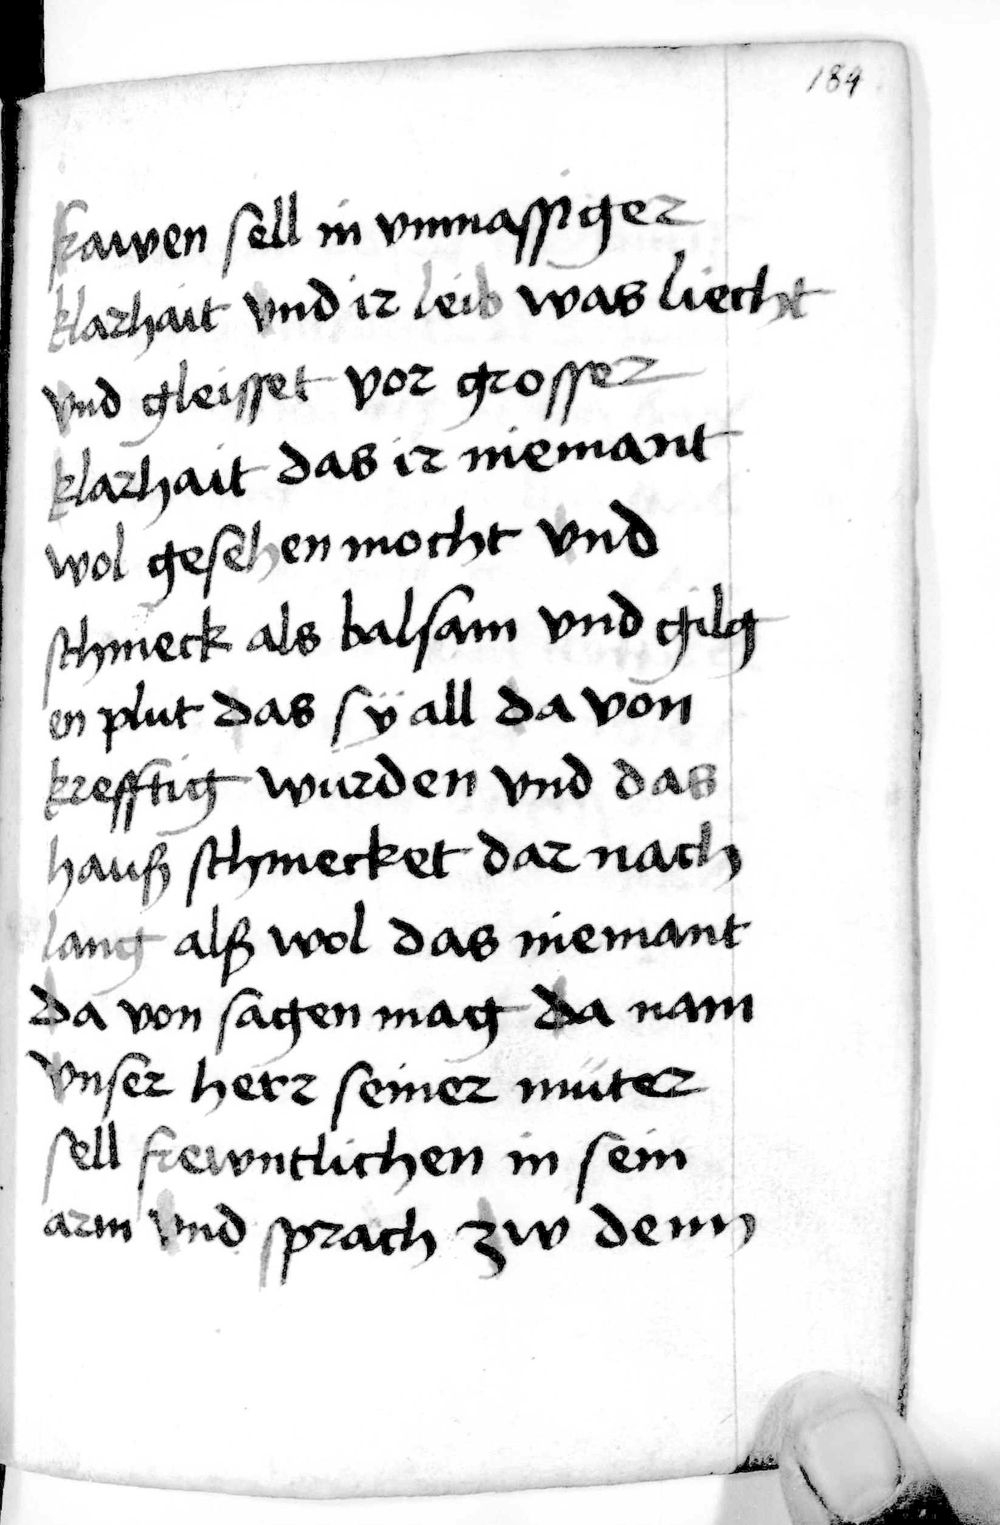 184
frawen sell in vnmassiger
klarhait vnd ir leib was liecht
vnd gleisset vor grosser
klarhait das ir niemant
wol gesehen mocht vnd
schmeck als balsam vnd gilg
en plut das sÿ all da von
krefftig wurden vnd das
hauß schmecket dar nach
lang alß wol das niemant
da von sagen mag da nam
vnser herr seiner müter
sell frewntlichen in sein
arm vnd sprach zw dem